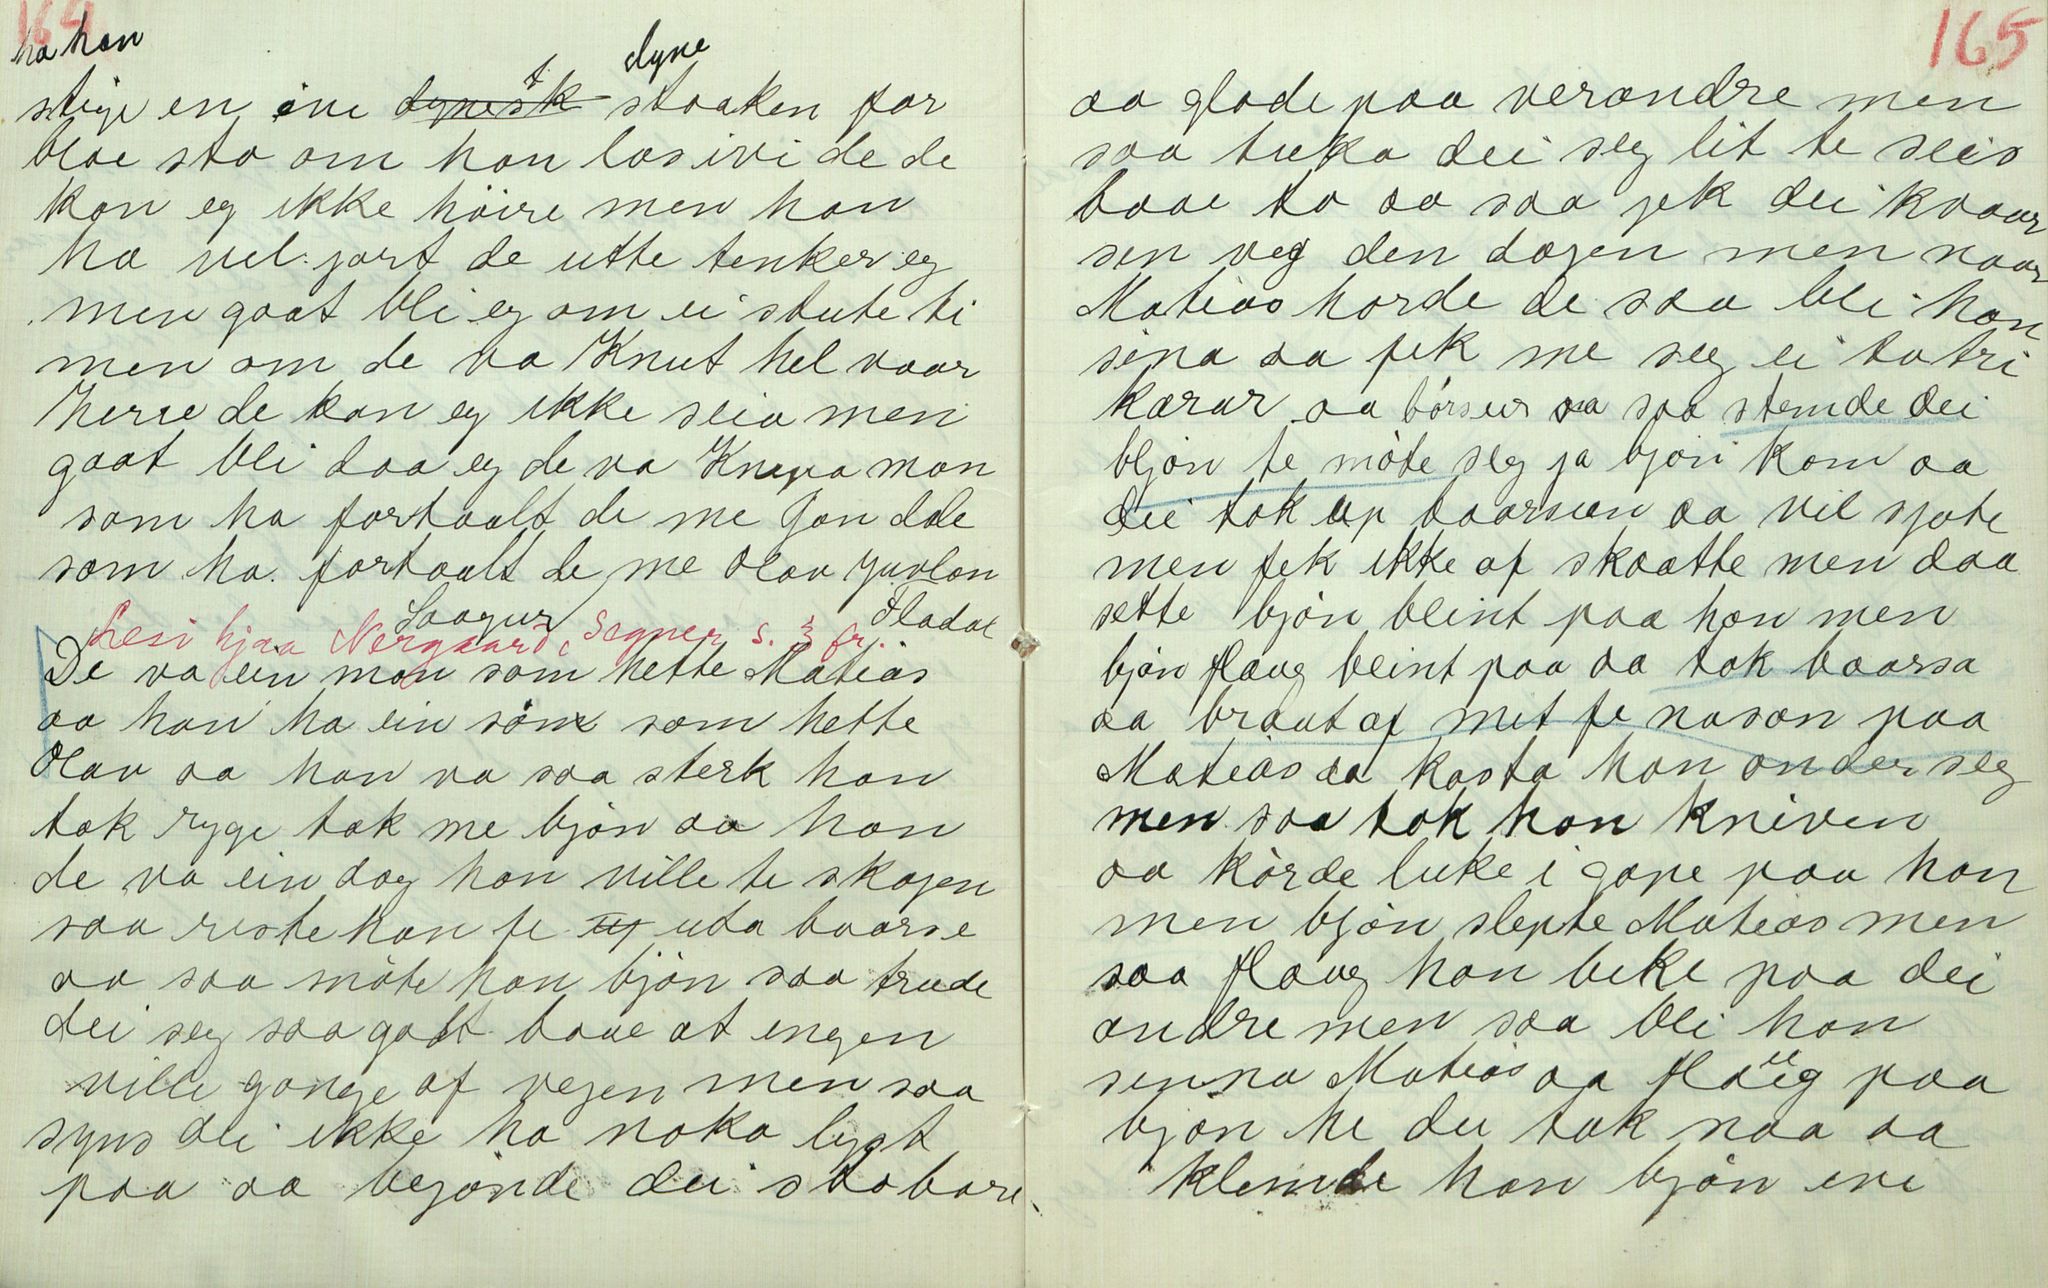 164
ha han dyne
stige en ive dynestk stoaken for
bloe sto om han las ivi de de
kan eg ikke höire men han
ha vel jort de utte tenker eg
men goat bli eg om ei stute ti
men om de va Knut hel vaar
herre de kan eg ikke seia men
goat bli daa eg de va Knapa man
som ha fortaalt de me Jon dale
som ha fortaalt de me Olav Juvlan
Saagur Fladal
Lesi hjaa Nergaard, Segner s. 3 fr.
De va ein man som hette Matias
aa han ha ein sön som hette
Olav aa han va saa sterk han
tok ryge tak me bjön aa han
de va ein dag han ville te skogen
saa reiste han fe uta baarse
aa saa möte han bjön saa trude
dei seg saa godt baae at engen
ville gonge af vegen men saa
syns dei ikke ha noka lyst
paa aa begönde dei stobare
165
aa glode paa verandre men
saa tuka dei seg lit te seis
baae to aa saa jek dei kvaar
sen veg den dagen men naar
Matias horde de saa bli han
sina aa fek me seg ei to tri
karar aa börsur aa saa stemde dei
bjön te möte seg ja bjön kom aa
dei tok up baarsun aa vil sjote
men fek ikke af skaatte men daa
sette bjön blint paa han men
bjön flaug blint paa aa tok baarsa
aa braut af mit fe nasan paa
Matias aa kasta han onder seg
men saa tok han kniven
aa körde luke i gape paa han
men bjön slepte Matias men
saa flaug han beke paa dei
andre men saa bli han
senna Matias aa flaug paa
bjön he du tok naa aa
klemde han bjön eve